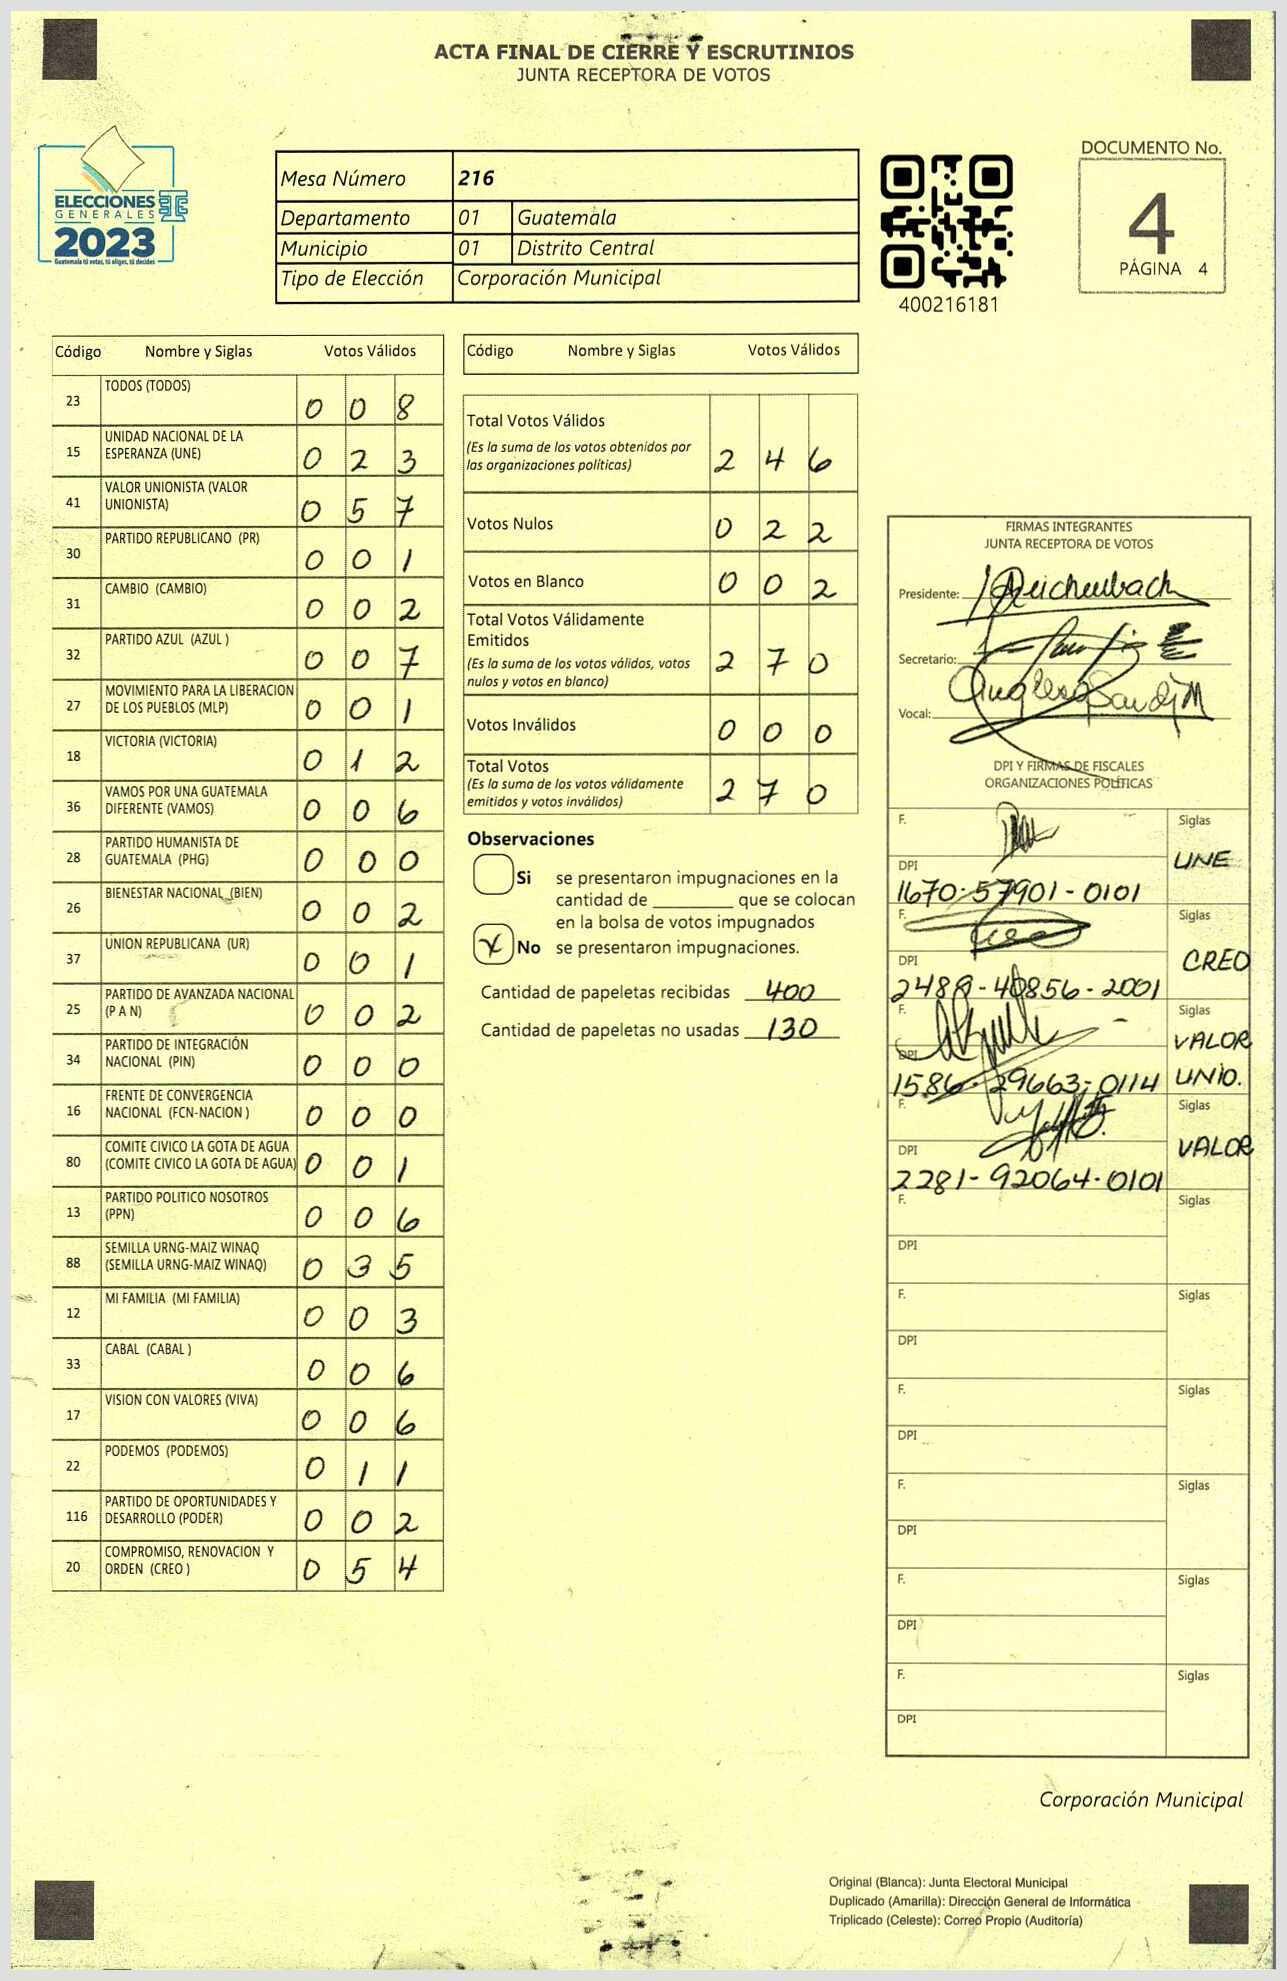 ACTA FINAL DE CIERRE Y ESCRUTINIOS
JUNTA RECEPTORA DE VOTOS
ELECCIONES
GENERALES
2023
Guatemala tú votas, tú eliges, tú decides
Mesa Número 216
Departamento 01 Guatemala
Municipio 01 Distrito Central
Tipo de Elección Corporación Municipal
400216181
DOCUMENTO No.
4
PÁGINA 4
Código Nombre y Siglas Votos Válidos
23 TODOS (TODOS) 0 0 8
15 UNIDAD NACIONAL DE LA
ESPERANZA (UNE) 0 2 3
41 VALOR UNIONISTA (VALOR
UNIONISTA) 0 5 7
30 PARTIDO REPUBLICANO (PR) 0 0 1
31 CAMBIO (CAMBIO) 0 0 2
32 PARTIDO AZUL (AZUL ) 0 0 7
27 MOVIMIENTO PARA LA LIBERACION
DE LOS PUEBLOS (MLP) 0 0 1
18 VICTORIA (VICTORIA) 0 1 2
36 VAMOS POR UNA GUATEMALA
DIFERENTE (VAMOS) 0 0 6
28 PARTIDO HUMANISTA DE
GUATEMALA (PHG) 0 0 0
26 BIENESTAR NACIONAL (BIEN) 0 0 2
37 UNION REPUBLICANA (UR) 0 0 1
25 PARTIDO DE AVANZADA NACIONAL
(P A N) 0 0 2
34 PARTIDO DE INTEGRACIÓN
NACIONAL (PIN) 0 0 0
16 FRENTE DE CONVERGENCIA
NACIONAL (FCN-NACION ) 0 0 0
80 COMITE CIVICO LA GOTA DE AGUA
(COMITE CIVICO LA GOTA DE AGUA) 0 0 1
13 PARTIDO POLITICO NOSOTROS
(PPN) 0 0 6
88 SEMILLA URNG-MAIZ WINAQ
(SEMILLA URNG-MAIZ WINAQ) 0 3 5
12 MI FAMILIA (MI FAMILIA) 0 0 3
33 CABAL (CABAL ) 0 0 6
17 VISION CON VALORES (VIVA) 0 0 6
22 PODEMOS (PODEMOS) 0 1 1
116 PARTIDO DE OPORTUNIDADES Y
DESARROLLO (PODER) 0 0 2
20 COMPROMISO, RENOVACION Y
ORDEN (CREO ) 0 5 4
Código Nombre y Siglas Votos Válidos
Total Votos Válidos
(Es la suma de los votos obtenidos por
las organizaciones políticas) 2 4 6
Votos Nulos 0 2 2
Votos en Blanco 0 0 2
Total Votos Válidamente
Emitidos
(Es la suma de los votos válidos, votos
nulos y votos en blanco) 2 7 0
Votos Inválidos 0 0 0
Total Votos
(Es la suma de los votos válidamente
emitidos y votos inválidos) 2 7 0
Observaciones
Si se presentaron impugnaciones en la
cantidad de ________ que se colocan
en la bolsa de votos impugnados
X No se presentaron impugnaciones.
Cantidad de papeletas recibidas 400
Cantidad de papeletas no usadas 130
FIRMAS INTEGRANTES
JUNTA RECEPTORA DE VOTOS
Presidente: Reichenbach
Secretario:
Vocal:
DPI Y FIRMAS DE FISCALES
ORGANIZACIONES POLÍTICAS
F. Siglas
UNE
DPI
1670-57901-0101
F. Siglas
CREO
DPI
2488-40856-2001
F. Siglas
VALOR
DPI
1586-29663-0114 UNIO.
F. Siglas
VALOR
DPI
2281-92064-0101
F. Siglas
DPI
F. Siglas
DPI
F. Siglas
DPI
F. Siglas
DPI
F. Siglas
DPI
F. Siglas
DPI
Corporación Municipal
Original (Blanca): Junta Electoral Municipal
Duplicado (Amarilla): Dirección General de Informática
Triplicado (Celeste): Correo Propio (Auditoría)